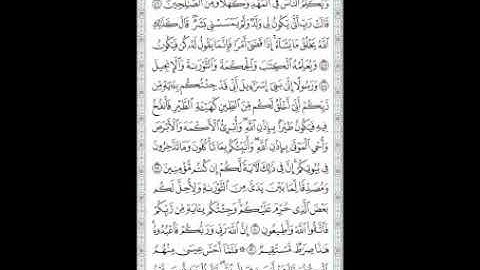 وَيُكَلِّمُ ٱلنَّاسَ فِى ٱلْمَهْدِ وَكَهْلًا وَمِنَ ٱلصَّـٰلِحِينَ ۝
قَالَتْ رَبِّ أَنَّىٰ يَكُونُ لِى وَلَدٌ وَلَمْ يَمْسَسْنِى بَشَرٌ ۖ قَالَ كَذَٰلِكِ
ٱللَّهُ يَخْلُقُ مَا يَشَآءُ ۚ إِذَا قَضَىٰٓ أَمْرًا فَإِنَّمَا يَقُولُ لَهُۥ كُن فَيَكُونُ
۝ وَيُعَلِّمُهُ ٱلْكِتَـٰبَ وَٱلْحِكْمَةَ وَٱلتَّوْرَىٰةَ وَٱلْإِنجِيلَ
۝ وَرَسُولًا إِلَىٰ بَنِىٓ إِسْرَٰٓءِيلَ أَنِّى قَدْ جِئْتُكُم بِـَٔايَةٍ مِّن
رَّبِّكُمْ ۖ أَنِّىٓ أَخْلُقُ لَكُم مِّنَ ٱلطِّينِ كَهَيْـَٔةِ ٱلطَّيْرِ فَأَنفُخُ
فِيهِ فَيَكُونُ طَيْرًۢا بِإِذْنِ ٱللَّهِ ۖ وَأُبْرِئُ ٱلْأَكْمَهَ وَٱلْأَبْرَصَ
وَأُحْىِ ٱلْمَوْتَىٰ بِإِذْنِ ٱللَّهِ ۖ وَأُنَبِّئُكُم بِمَا تَأْكُلُونَ وَمَا تَدَّخِرُونَ
فِى بُيُوتِكُمْ ۚ إِنَّ فِى ذَٰلِكَ لَـَٔايَةً لَّكُمْ إِن كُنتُم مُّؤْمِنِينَ ۝
وَمُصَدِّقًا لِّمَا بَيْنَ يَدَىَّ مِنَ ٱلتَّوْرَىٰةِ وَلِأُحِلَّ لَكُم
بَعْضَ ٱلَّذِى حُرِّمَ عَلَيْكُمْ ۚ وَجِئْتُكُم بِـَٔايَةٍ مِّن رَّبِّكُمْ
فَٱتَّقُوا۟ ٱللَّهَ وَأَطِيعُونِ ۝ إِنَّ ٱللَّهَ رَبِّى وَرَبُّكُمْ فَٱعْبُدُوهُ ۗ
هَـٰذَا صِرَٰطٌ مُّسْتَقِيمٌ ۝ فَلَمَّآ أَحَسَّ عِيسَىٰ مِنْهُمُ